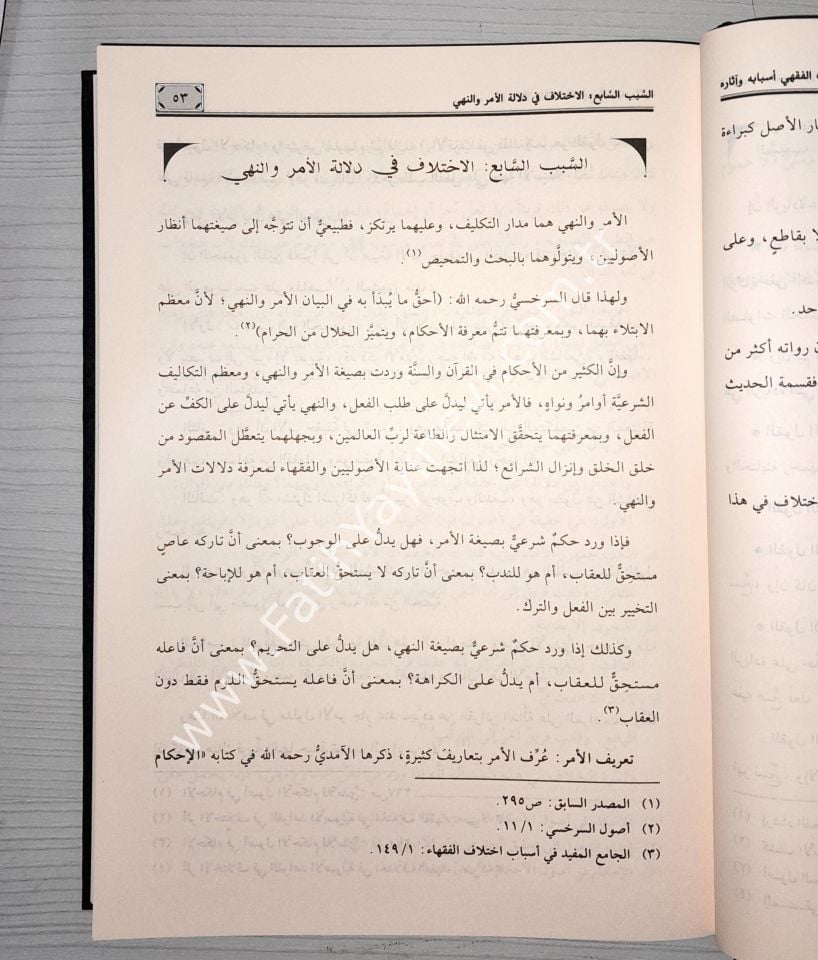 السَّبب السَّابع: الاختلاف في دلالة الأمر والنهي
٥٣
السَّبب السَّابع: الاختلاف في دلالة الأمر والنهي
الأمر والنهي هما مدار التكليف، وعليهما يرتكز، فطبيعيٌّ أن تتوجَّه إلى صيغتهما أنظار
الأصوليين، ويتولَّوهما بالبحث والتمحيص(١).
ولهذا قال السرخسيُّ رحمه الله: (أحقُّ ما يُبدَأ به في البيان الأمر والنهي؛ لأنَّ معظم
الابتلاء بهما، وبمعرفتهما تتمُّ معرفة الأحكام، ويتميَّز الحلال من الحرام)(٢).
وإنَّ الكثير من الأحكام في القرآن والسنَّة وردت بصيغة الأمر والنهي، ومعظم التكاليف
الشرعيَّة أوامرُ ونواهٍ، فالأمر يأتي ليدلَّ على طلب الفعل، والنهي يأتي ليدلَّ على الكفِّ عن
الفعل، وبمعرفتهما يتحقَّق الامتثال والطاعة لربِّ العالمين، وبجهلهما يتعطَّل المقصود من
خلق الخلق وإنزال الشرائع؛ لذا اتجهت عناية الأصوليين والفقهاء لمعرفة دلالات الأمر
والنهي.
فإذا ورد حكمٌ شرعيٌّ بصيغة الأمر، فهل يدلُّ على الوجوب؟ بمعنى أنَّ تاركه عاصٍ
مستحِقٌّ للعقاب، أم هو للندب؟ بمعنى أنَّ تاركه لا يستحقُّ العقاب، أم هو للإباحة؟ بمعنى
التخيير بين الفعل والترك.
وكذلك إذا ورد حكمٌ شرعيٌّ بصيغة النهي، هل يدلُّ على التحريم؟ بمعنى أنَّ فاعله
مستحِقٌّ للعقاب، أم يدلُّ على الكراهة؟ بمعنى أنَّ فاعله يستحقُّ اللوم فقط دون
العقاب(٣).
تعريف الأمر: عُرِّف الأمر بتعاريفَ كثيرةٍ، ذكرها الآمديُّ رحمه الله في كتابه «الإحكام
(١) المصدر السابق: ص٢٩٥.
(٢) أصول السرخسي: ١١/١.
(٣) الجامع المفيد في أسباب اختلاف الفقهاء: ١٤٩/١.
الفقهي أسبابه وآثاره
الأصل كبراءة
بقاطعٍ، وعلى
رواته أكثر من
فقسمة الحديث
في هذا
www.FatihYayin